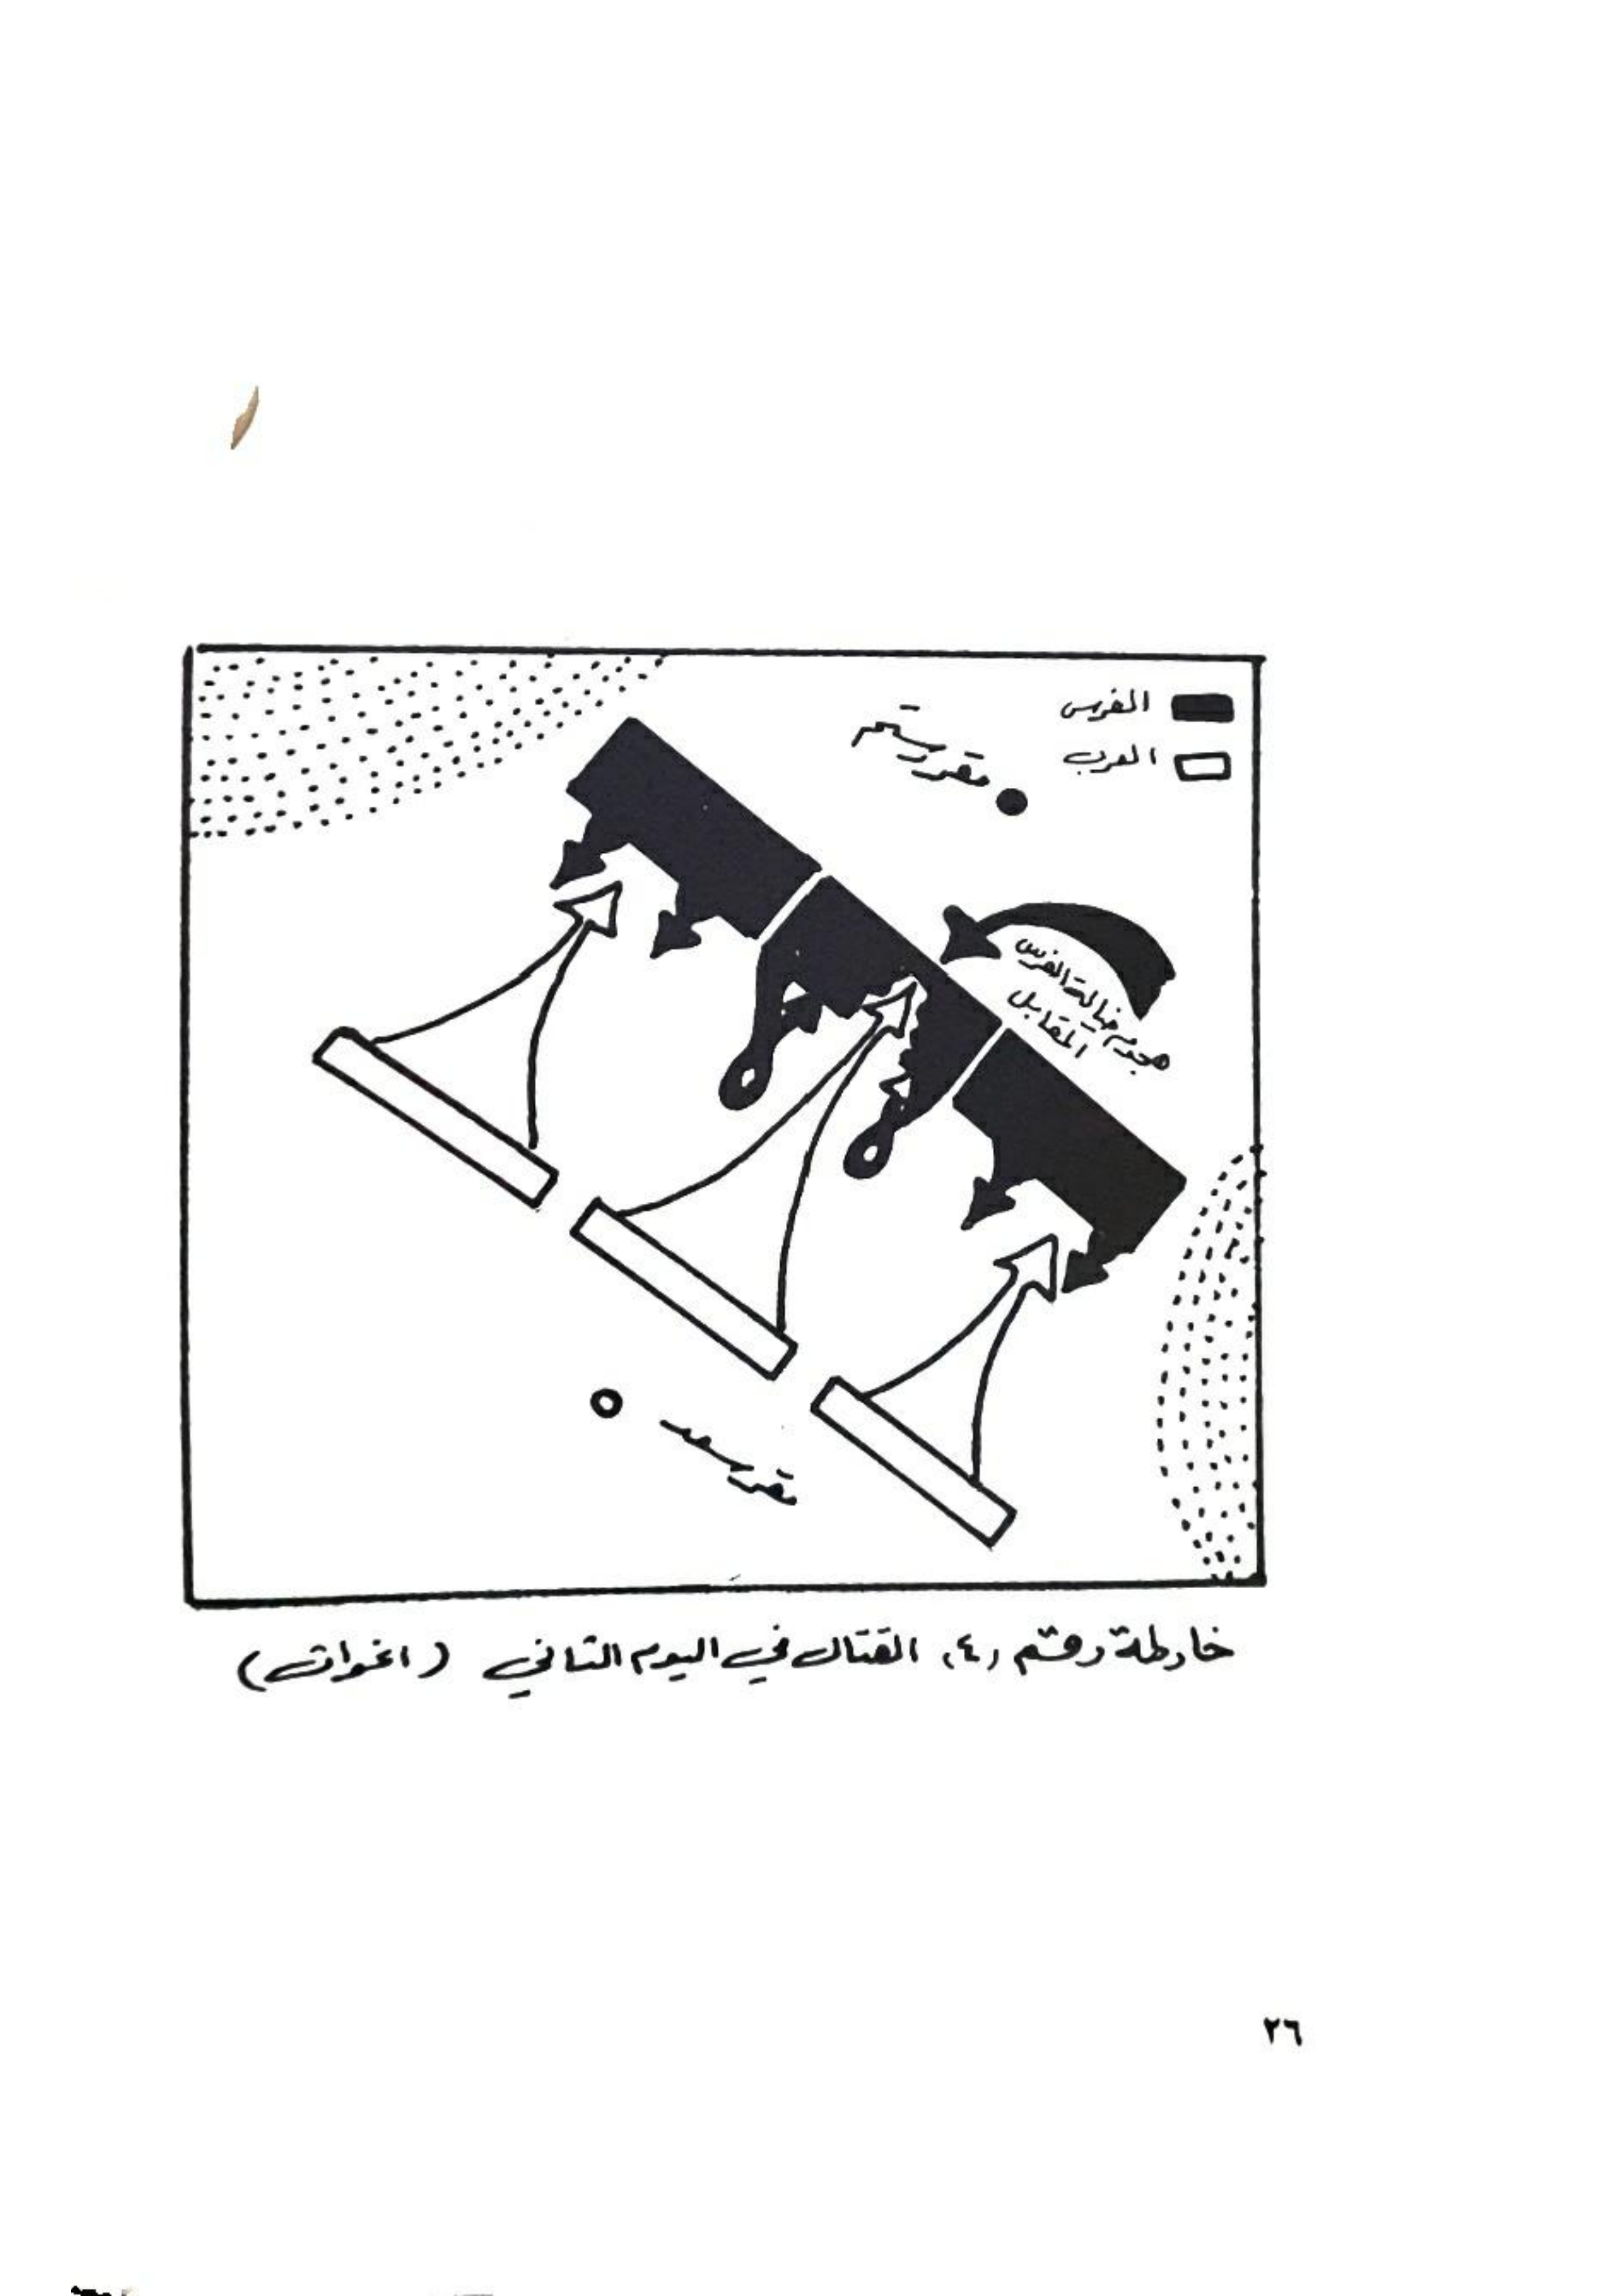 الفرس
العرب
مقر رستم
هجوم خيالة الفرس
المقابل
مقر سعد
خارطة رقم (٤) القتال في اليوم الثاني (اغواث)
٢٦